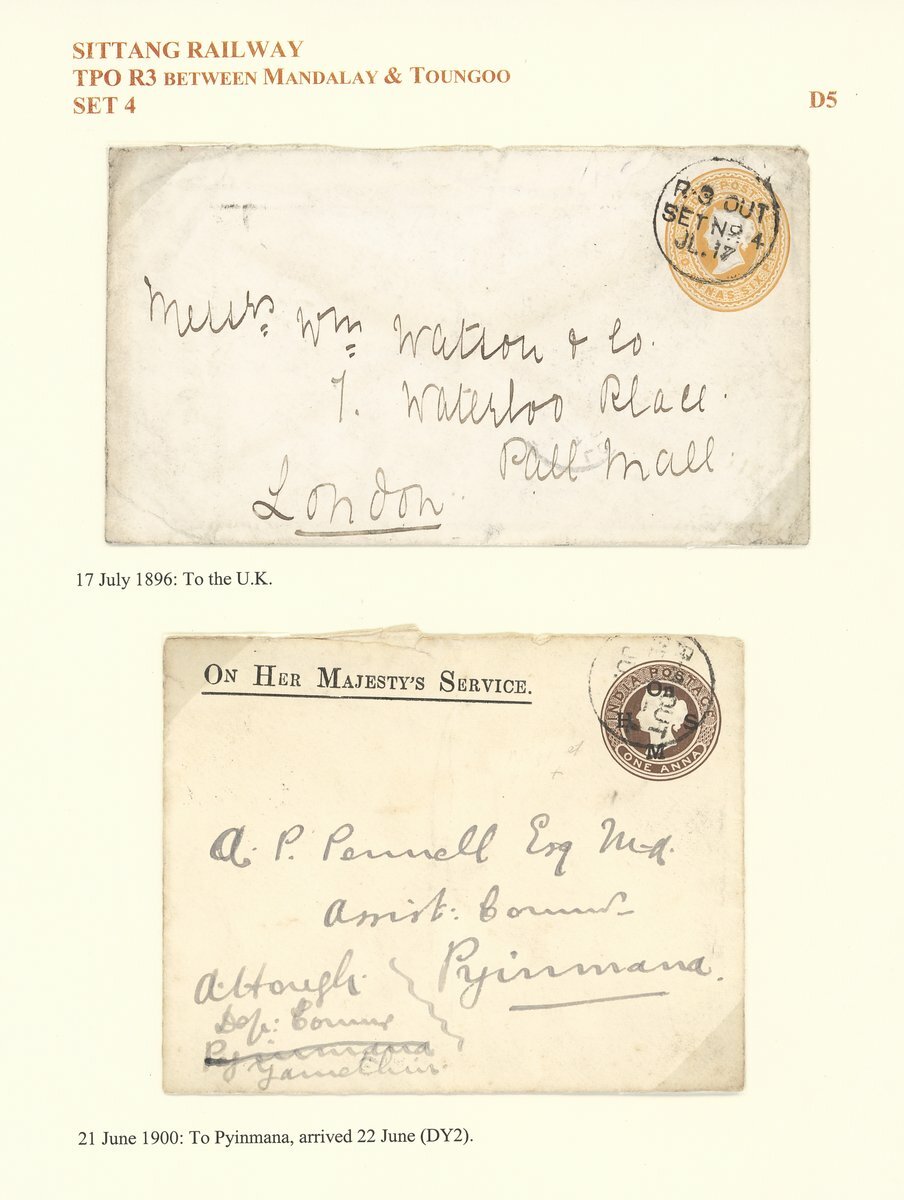 SITTANG RAILWAY
TPO R3 BETWEEN MANDALAY & TOUNGOO
SET 4
D5
R-3 OUT
SET No. 4
JL.17
INDIA POSTAGE
Messrs. Wm. Watson & Co.
7. Waterloo Place.
Pall Mall.
London.
17 July 1896: To the U.K.
ON HER MAJESTY'S SERVICE.
INDIA POSTAGE
On
H. S
M
ONE ANNA
OUT
A. P. Pennell Esq M.A.
Assist: Commr
Pyinmana.
A Hough.
Dep: Commr
Pyinmana
Yamethin.
21 June 1900: To Pyinmana, arrived 22 June (DY2).